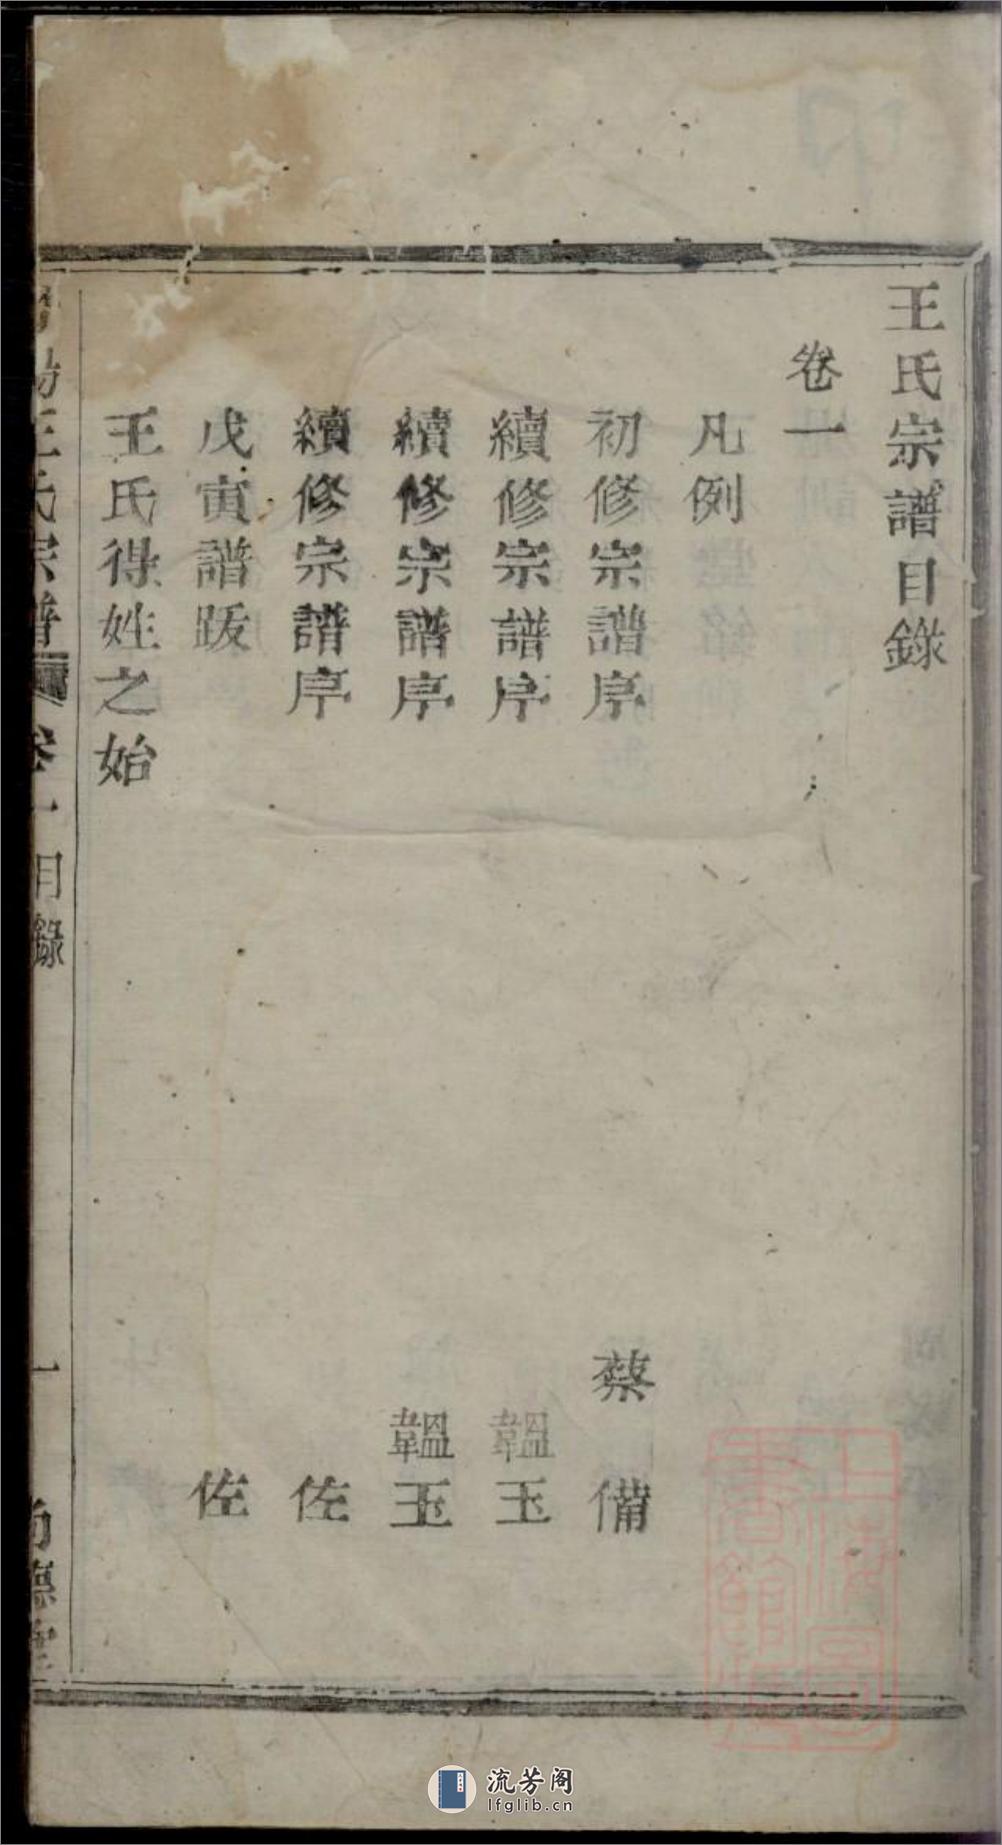 王氏宗譜目錄
卷一
凡例
初修宗譜序 蔡備
續修宗譜序 韞玉
續修宗譜序 韞玉
續修宗譜序 佐
戊寅譜跋 佐
王氏得姓之始
陽王氏宗譜 卷一目錄 一 尚德堂
上海圖書館藏
流芳阁
lfglib.cn